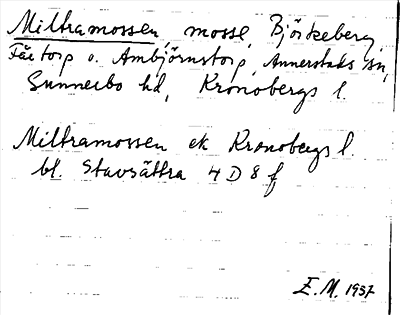 Miltramossen, mosse, Björkeberg,
Fåetorp o. Ambjörnstorp, Annerstads sn,
Sunnerbo hd, Kronobergs l.
Miltramossen ek Kronobergs l.
bl. Stavsättra 4 D 8 f
E.M. 1957